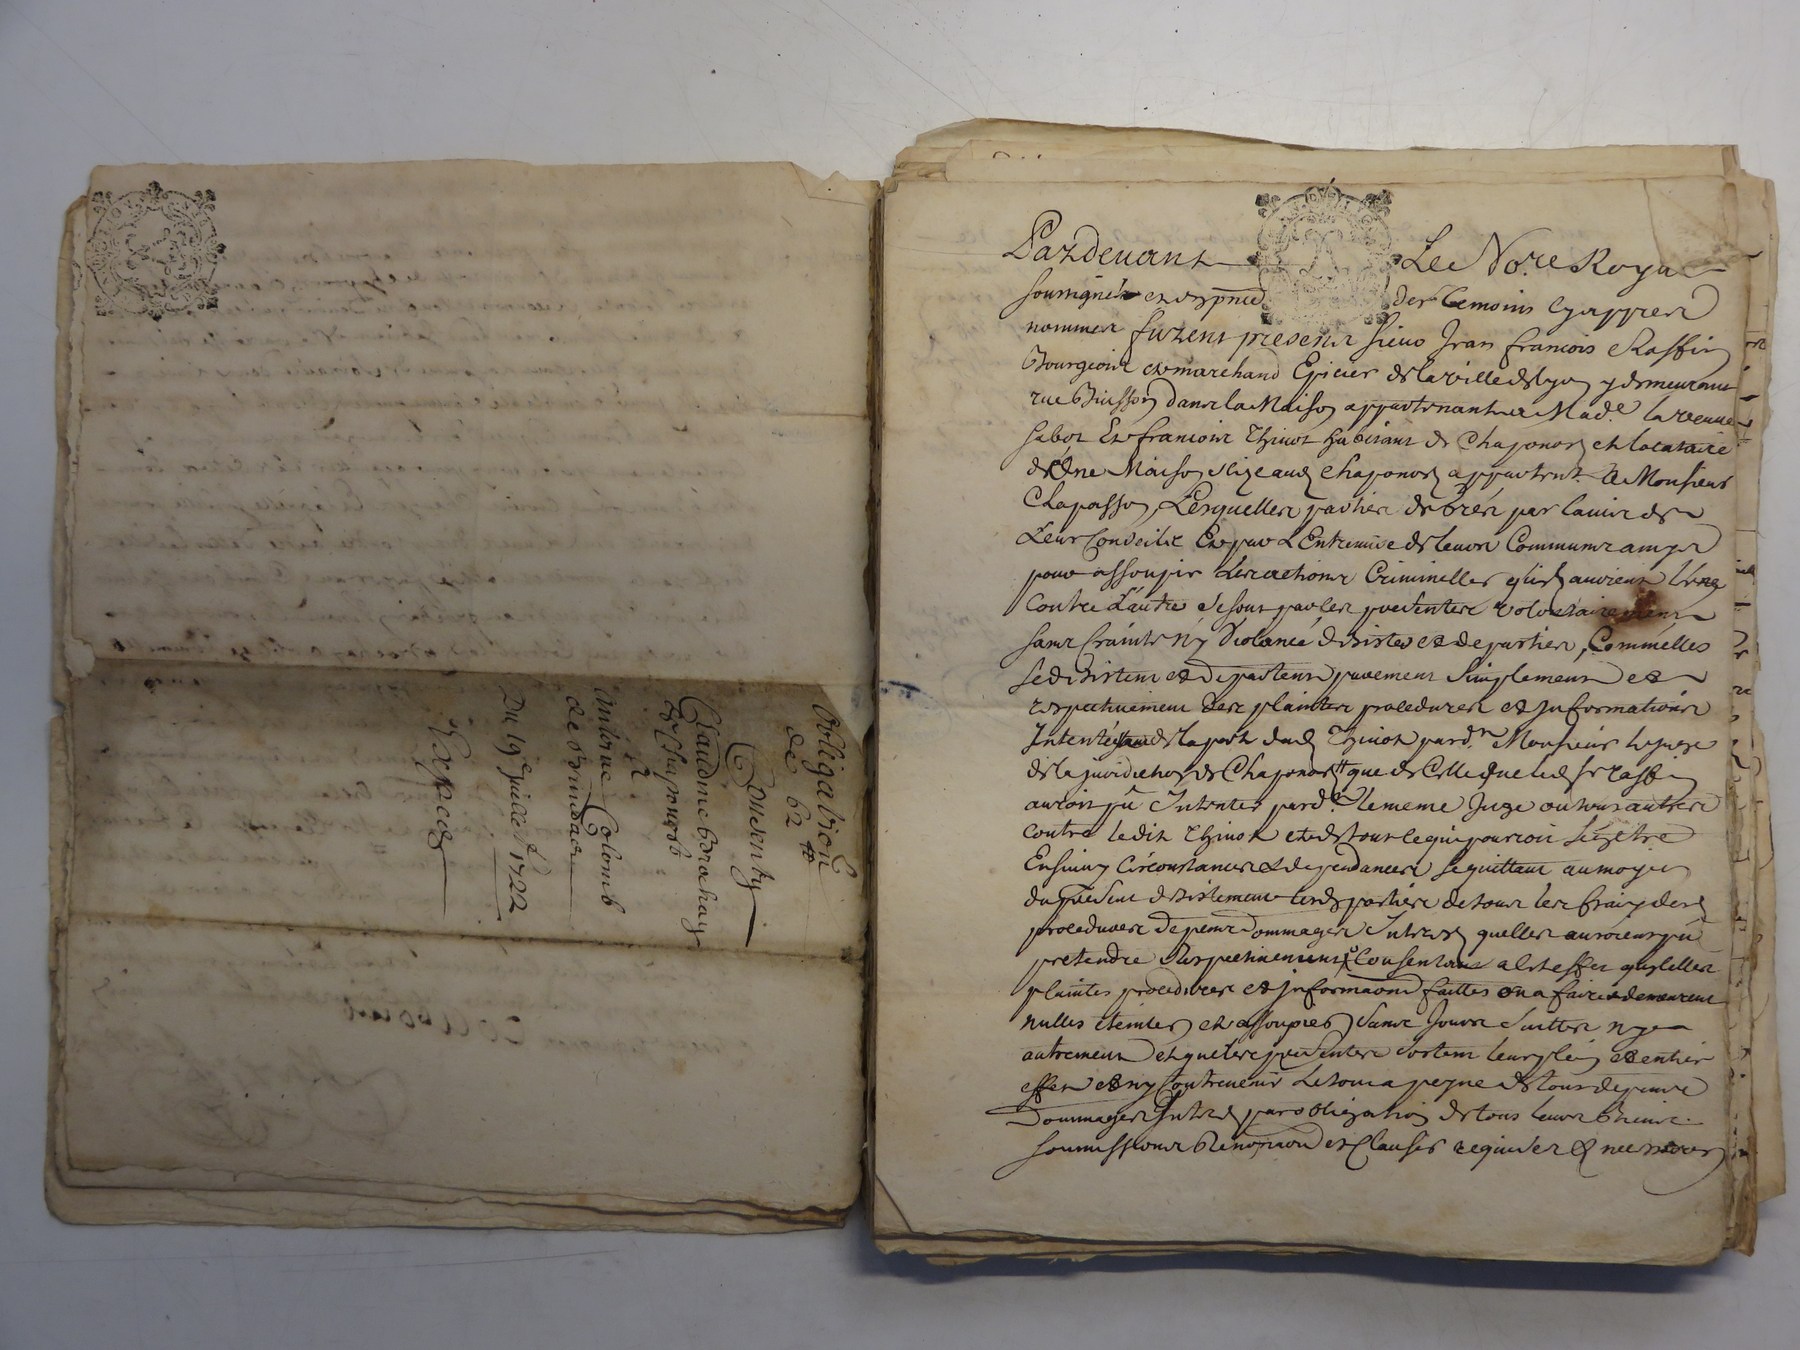 Obligation
de 62 ₶
Consenty
Claudine
de Chaponost
à
Antoine Colomb
de Brindas
Du 19e juillet 1722
Expéé
Pardevant Le No.re Royal
soussigné et en pñce des temoins cy appres
nommes furent presents sieur Jean francois Raffin
Bourgeois et marchand Epicier de la ville de lyon y demeurant
rue Buisson dans la Maison appartenante a Made. la veuve
Sabot Et francois Thivot habitant de Chaponost et locataire
d'Une Maison size aud Chaponost appartent. a Monsieur
Chapasson, Lesquelles parties de gré par l'avis de
Leur Conseils Et par L'Entremise de leurs Communs amys
pour assoupir les actions Criminelles qu'ils avoient l'une
Contre L'autre se sont par les presentes volontairement
sans crainte ny violance desisteés et departies, Comm'elles
se desistent et departent purement simplement et
respectivement des plaintes procedures et informations
Intentéés de la part dud Thivot pard.t Monsieur le juge
de la jurisdiction de Chaponost que de Celle que led sr raffin
auroit pû Intenter pard.t le meme juge ou tous autres
contre le dit Thivot et de tout ce qui pourroit s'en etre
Ensuivy Circonstances et dependances se quittant au moyen
du présent desistement lesd parties de tous les frais desd
procedures depens dommages Interests quelles auroient pû
pretendre respectivement Consentant a Cet effet qu'icelles
plaintes procedures et informaons faittes ou a faire demeurent
nulles eteintes et assoupies sans jours suittes ny
autrement et que les presentes sortent leur plein et entier
effet et n'y Contrevenir le tout a peyne de tous depens
Dommages Intrests par obligation de tous leurs Biens
soumissions Renonçaon et Clauses requises & necessaires